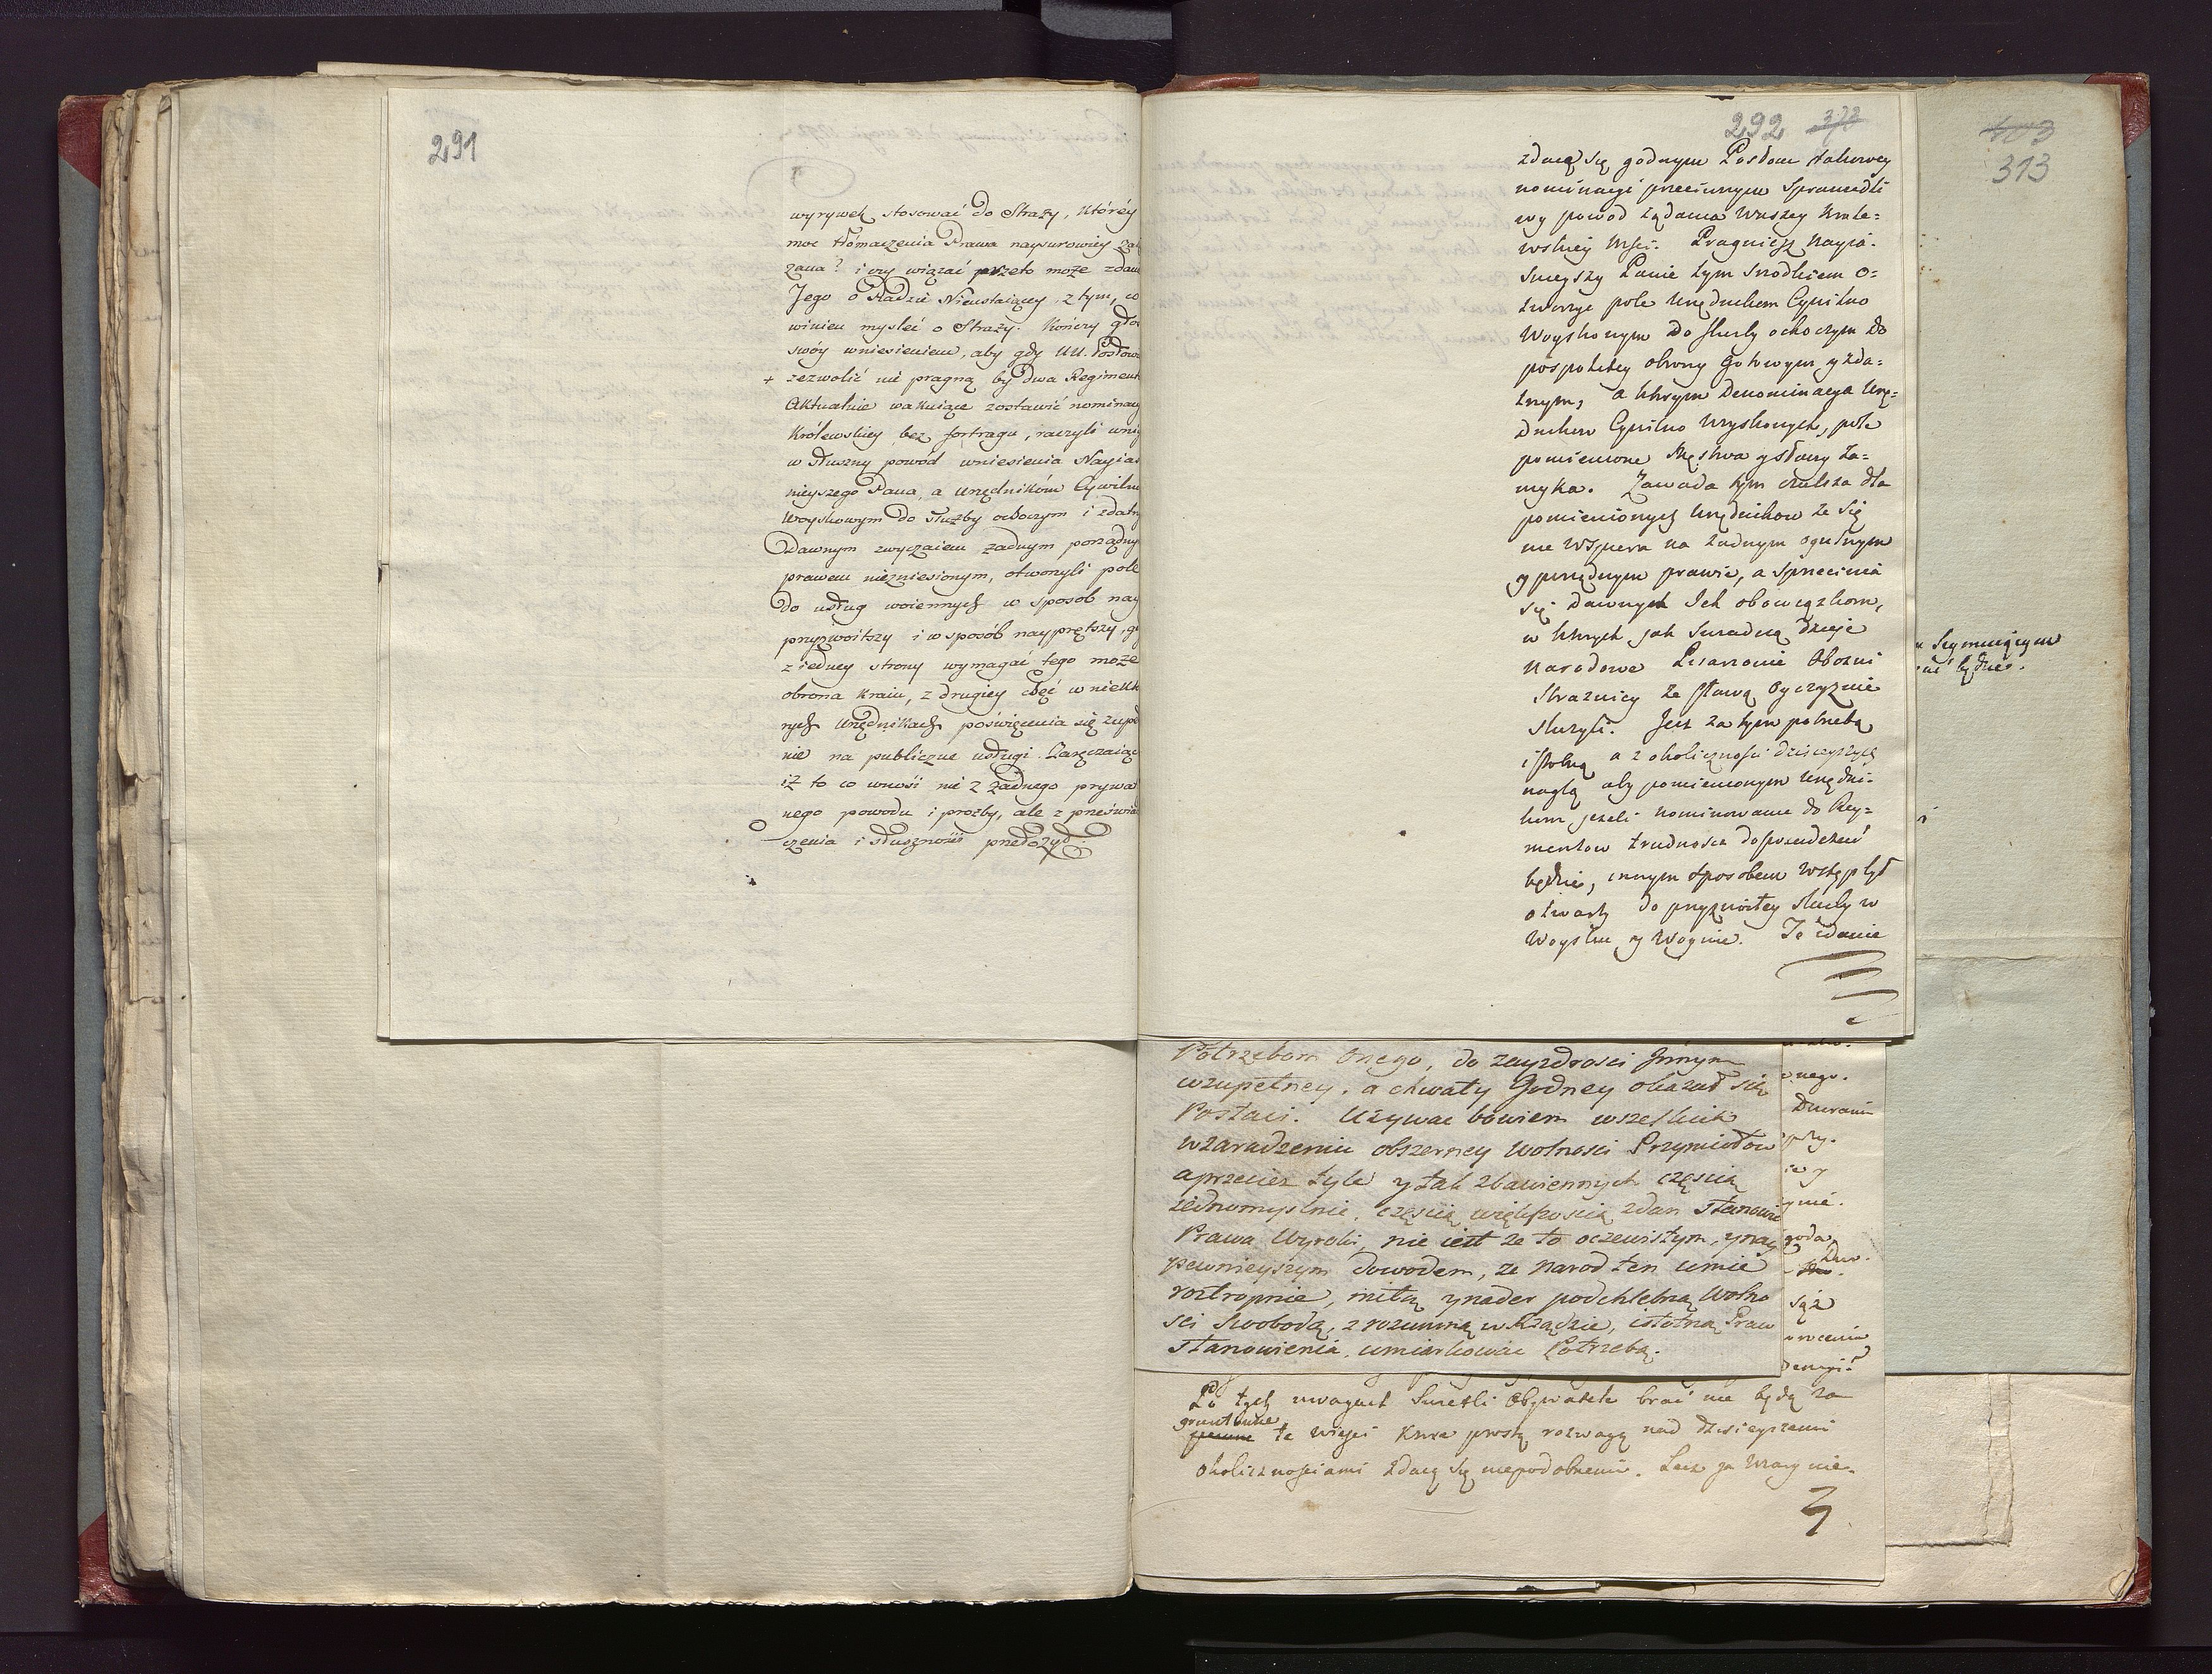 291
wyrywek stosować do Straży, któréy
moc tłómaczenia Prawa naysurowiey zak
zana? i czy wiązać przeto może zdan
Jego o Radzie Nieustaiącey, z tym, co
winien mysleć o Straży. Kończy gło
swóy wniesieniem, aby gdy UU. Posłow
+ zezwolić nie pragną by dwa Regiment
Aktualnie wakuiące zostawić nominacy
Królewskiey bez fortragu, raczyli wniy
w słuszny powód wniesienia Nayias
nieyszego Pana, a urzędnikóm Cywilno
Woyskowym do służby ochoczym i zdatny
Dawnym zwyczaiem żadnym porządny
prawem niezniesionym, otworzyli pole
do usług woiennych w sposób nay
przyzwoitszy i w sposób nayprętszy, gd
z iedney strony wymagać tego może
obrona kraiu, z drugiey chęć w niektó
rych urzędnikach poświęcenia się zupeł
nie na publiczne usługi. Zaręczaiąc
iż to co wnosi nie z żadnego prywa
nego powodu i prozby, ale z przeświad
czenia i słuszności przełożył.
292 378
zdaią się godnym Posłom takowey
nominacyi przeciwnym Sprawedli
wy powod żądania Waszey Krole=
wskiey Msci. Pragniesz Nayia-
snieyszy Panie tym srodkiem o=
tworzyc pole Urzędnikom Cywilno
Woyskonym Do służby ochoczym do
pospolitey obrony gotowym y zda=
tnym, a ktorym Denominacya Urzę=
dnikow Cywilno Wryskonych, pole
pomienione Męstwa y sławy Za=
myka. Zawada tym czulsza dla
pomienionych Urzędnikow ze się
nie wspiera na żadnym ogulnym
y porządnym prawie, a sprzeciwia
się dawnych Ich obowiązkom,
w ktorych jak swiadczą dzieje
Narodowe Pisarzowie Obozni
Straznicy ze sławą Oyczyznie
służyli. Jest za tym potrzebą
istotną a z okoliczności dzisieyszych
nagłą aby pomienionym Urzędni-
kom jezeli nominowanie do Rey=
mentow trudności doswiadczać
będzie, innym sposobem wstęp był
otwarty do przyzwoitey służby w
Woysku y Woynie. To zdanie
403
313
Seymuiącym
będzie.
Potrzebom Onego, do zayzdrosci Jnnym
wzupełney, a chwały Godney okazał się
Postaci. Używac bowiem wszelkich
wzaradzeniu obszerney Wolnosci Przymiotow
aprzeciez tyle y tak zbawiennych częscią
iednomyslnie, częscią większoscią zdan stanowic
Prawa Wyroki, nie iest ze to oczewistym, ynay
pewnieyszym dowodem, ze Narod ten umie
roztropnie, miłą ynader podchlebną Wolno
sci swobodą, z rozumną w Rządzie, istotną Praw
stanowienia, umiarkować Potrzebą.
Po tych uwagach Swiatli Obywatele brać nie będą za
gruntowne
te wieści Które prostą rozwagą nad dzisieyszemi
okolicznościami zdaią się niepodobnemi. Lecz ja Wracy nie-